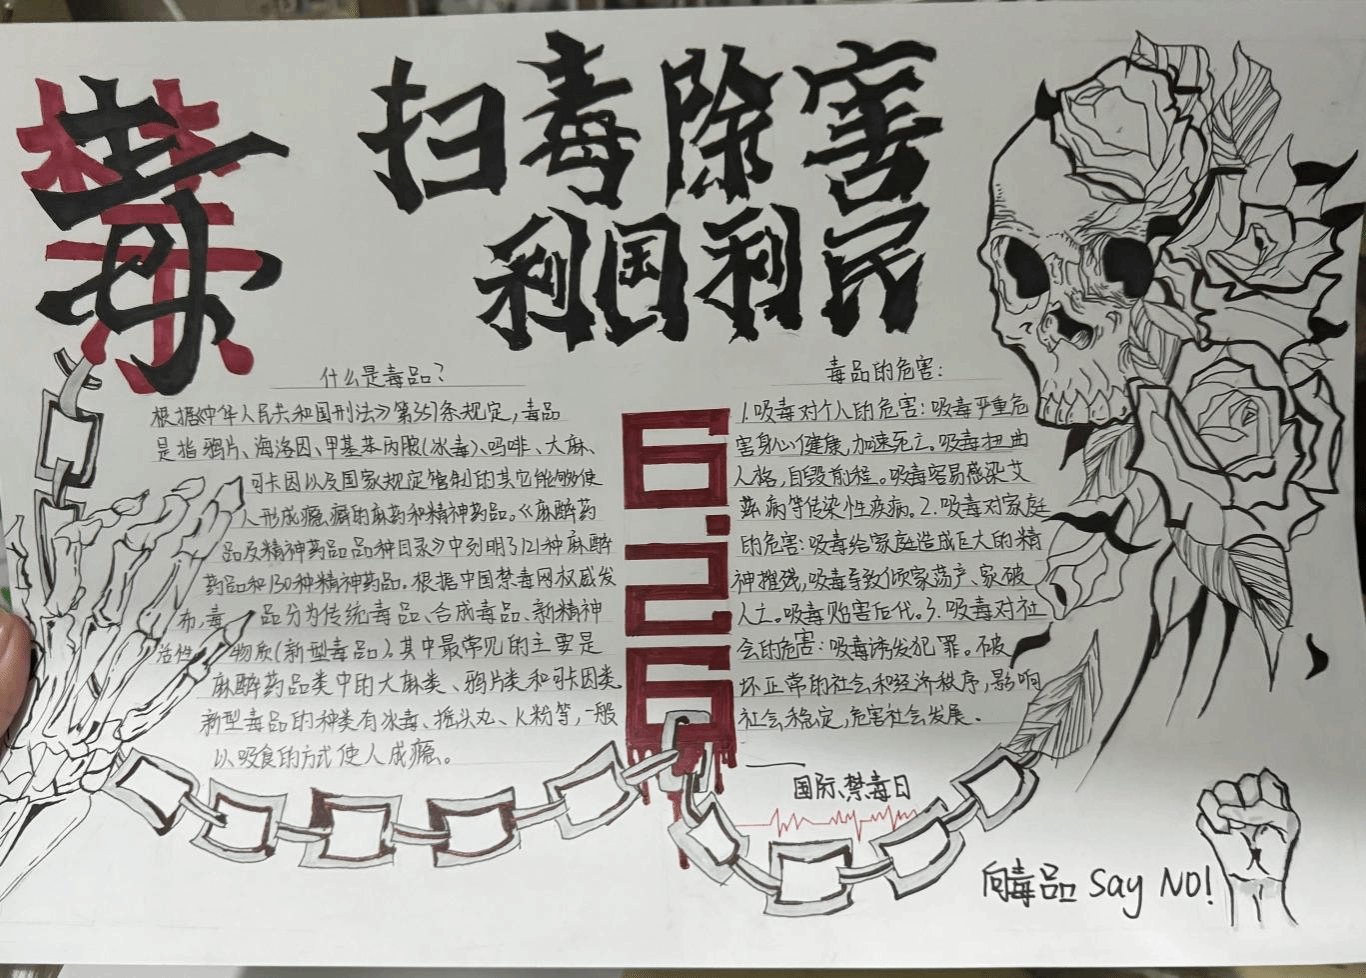 禁毒
扫毒除害
利国利民
什么是毒品?
根据《中华人民共和国刑法》第357条规定,毒品
是指鸦片、海洛因、甲基苯丙胺(冰毒)、吗啡、大麻、
可卡因以及国家规定管制的其它能够使
人形成瘾癖的麻药和精神药品。《麻醉药
品及精神药品品种目录》中列明了121种麻醉
药品和130种精神药品。根据中国禁毒网权威发
布,毒品分为传统毒品、合成毒品、新精神
活性物质(新型毒品)。其中最常见的主要是
麻醉药品类中的大麻类、鸦片类和可卡因类
新型毒品的种类有冰毒、摇头丸、K粉等,一般
以吸食的方式使人成瘾。
6.26
毒品的危害:
1.吸毒对个人的危害:吸毒严重危
害身心健康,加速死亡。吸毒扭曲
人格,自毁前程。吸毒容易感染艾
滋病等传染性疾病。2.吸毒对家庭
的危害:吸毒给家庭造成巨大的精
神摧残,吸毒导致倾家荡产、家破
人亡。吸毒贻害后代。3.吸毒对社
会的危害:吸毒诱发犯罪。破
坏正常的社会和经济秩序,影响
社会稳定,危害社会发展。
国际禁毒日
向毒品 Say NO!